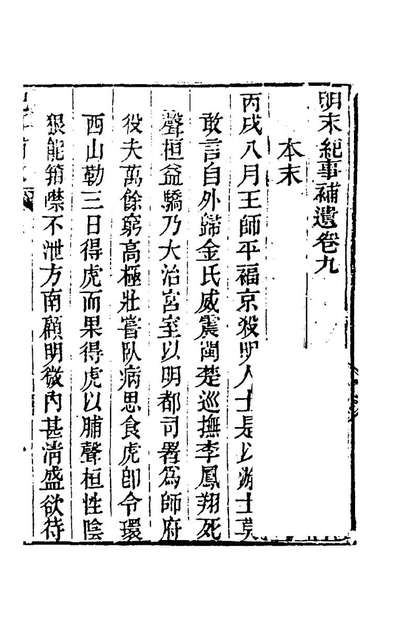 明末紀事補遺卷九
本末
丙戌八月王師平福京殺明人士是以游士莫
敢言自外歸金氏威震閩楚巡撫李鳳翔死
聲桓益驕乃大治宮室以明都司署爲師府
役夫萬餘窮高極壯嘗队病思食虎卽令環
西山勒三日得虎而果得虎以脯聲桓性陰
狠能箝噤不泄方南顧明微內甚淸盛欲待